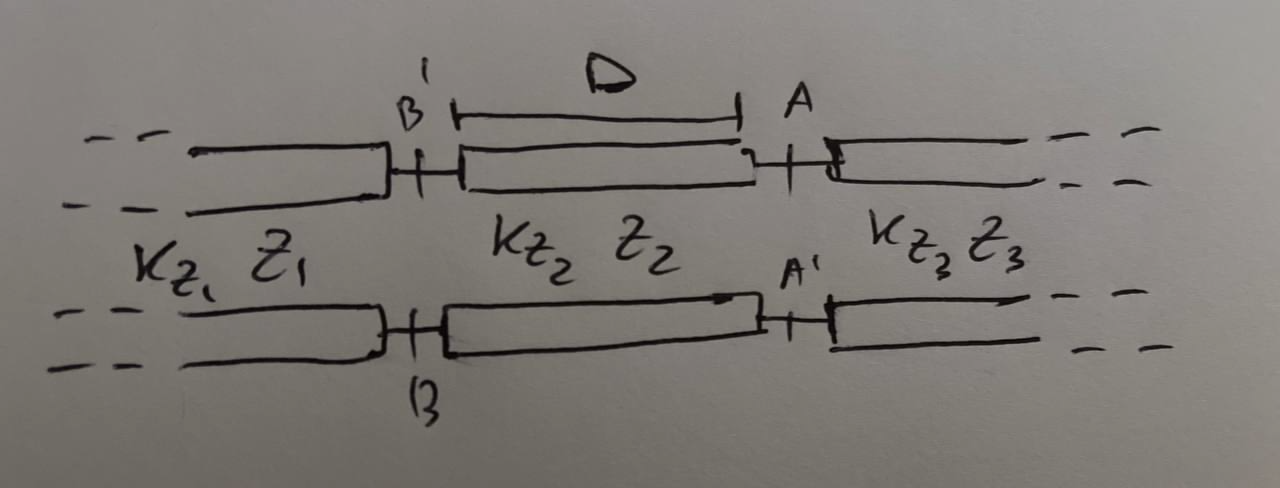 D
B' A
Kz₁ Z₁ Kz₂ Z₂ Kz₃ Z₃
A'
B